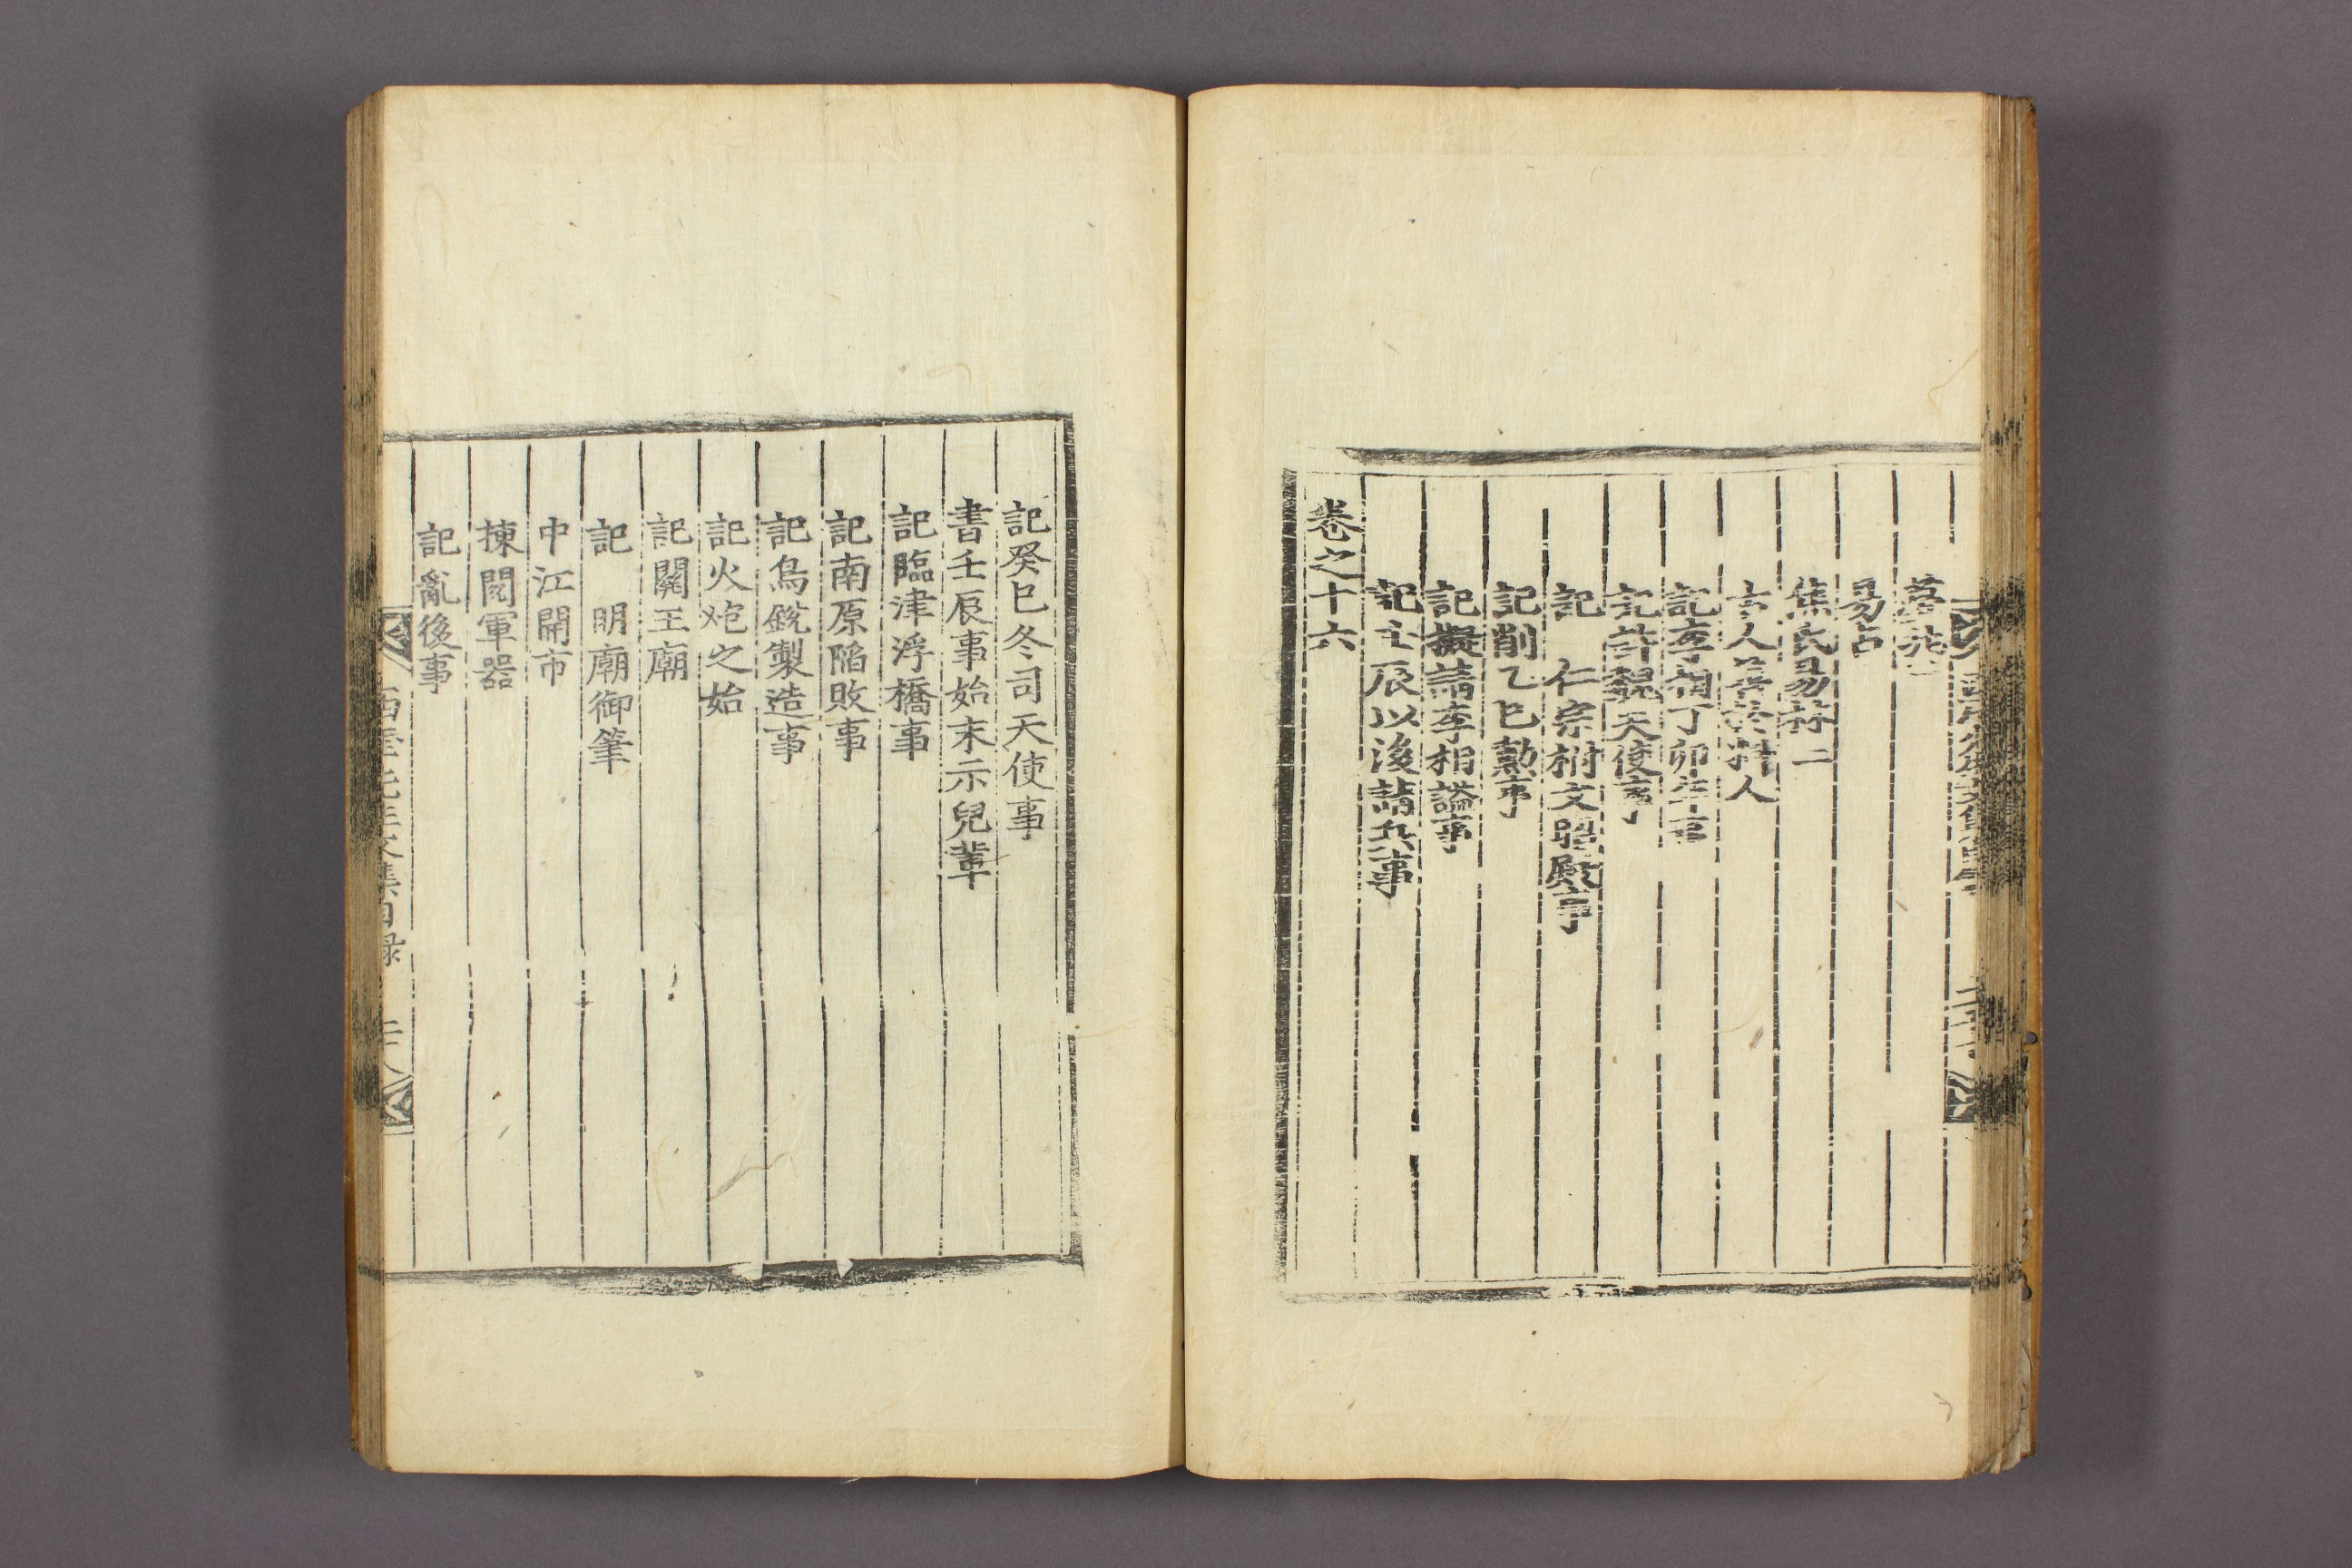 蓍法
易占
焦氏易林二
古人善於料人
記李相丁卯年事
記許魏天使事
記 仁宗祔文昭殿事
記削乙巳勳事
記擬諡李相謚事
記壬辰以後請兵事
卷之十六
記癸巳冬司天使事
書壬辰事始末示兒輩
記臨津浮橋事
記南原陷敗事
記鳥銃製造事
記火炮之始
記關王廟
記 明廟御筆
中江開市
揀閱軍器
記亂後事
西厓先生文集目錄 二十八